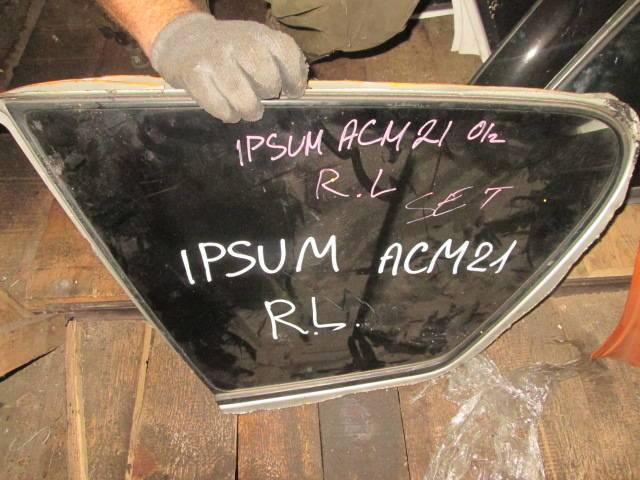 IPSUM ACM21 0/2
R.L SET
IPSUM ACM21
R.L.